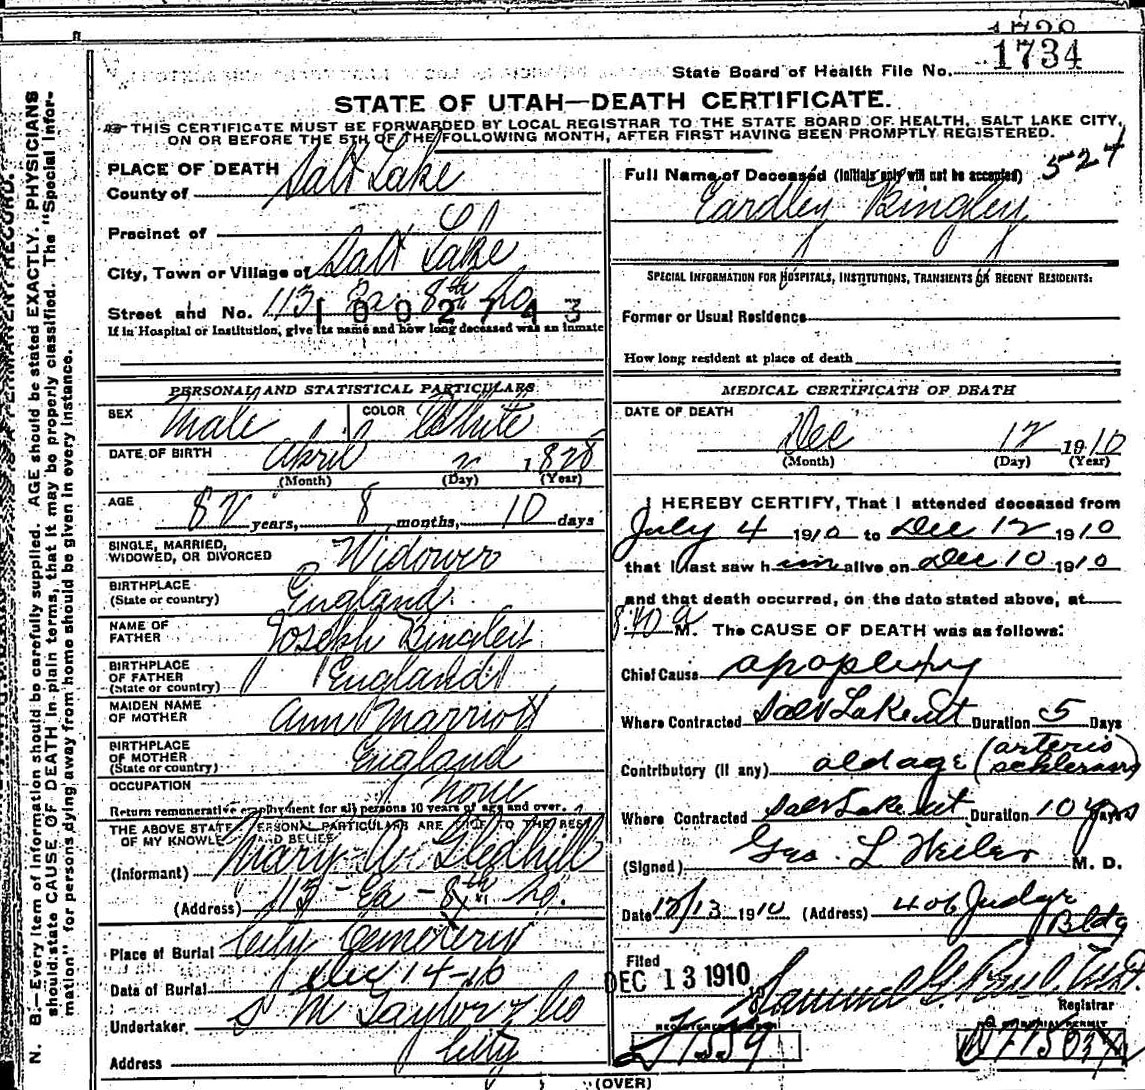 1734
State Board of Health File No.
STATE OF UTAH—DEATH CERTIFICATE.
THIS CERTIFICATE MUST BE FORWARDED BY LOCAL REGISTRAR TO THE STATE BOARD OF HEALTH, SALT LAKE CITY,
ON OR BEFORE THE 5TH OF THE FOLLOWING MONTH, AFTER FIRST HAVING BEEN PROMPTLY REGISTERED.
N. B.—Every item of information should be carefully supplied. AGE should be stated EXACTLY. PHYSICIANS
should state CAUSE OF DEATH in plain terms, that it may be properly classified. The "Special Infor-
mation" for persons dying away from home should be given in every instance.
PLACE OF DEATH
County of Salt Lake
Precinct of
City, Town or Village of Salt Lake
Street and No. 113 Ea. 8th So
1002743
If in Hospital or Institution, give its name and how long deceased was an inmate
PERSONAL AND STATISTICAL PARTICULARS
SEX Male COLOR White
DATE OF BIRTH April 2 1828
(Month) (Day) (Year)
AGE 82 years, 8 months, 10 days
SINGLE, MARRIED,
WIDOWED, OR DIVORCED Widower
BIRTHPLACE
(State or country) England
NAME OF
FATHER Joseph Bingley
BIRTHPLACE
OF FATHER
(State or country) England
MAIDEN NAME
OF MOTHER Ann Marriott
BIRTHPLACE
OF MOTHER
(State or country) England
OCCUPATION None
Return remunerative employment for all persons 10 years of age and over.
THE ABOVE STATE PERSONAL PARTICULARS ARE TO THE BES
OF MY KNOWLE AND BELIEF
(Informant) Mary A. Gledhill
(Address) 113 - Ea - 8th So.
Place of Burial City Cemetery
Date of Burial Dec 14-10
Undertaker S M Taylor & Co
Address City
Full Name of Deceased (Initials only will not be accepted)
Eardley Bingley
SPECIAL INFORMATION FOR HOSPITALS, INSTITUTIONS, TRANSIENTS OR RECENT RESIDENTS:
Former or Usual Residence
How long resident at place of death
MEDICAL CERTIFICATE OF DEATH
DATE OF DEATH
Dec 12 1910
(Month) (Day) (Year)
I HEREBY CERTIFY, That I attended deceased from
July 4 1910 to Dec 12 1910
that I last saw him alive on Dec 10 1910
and that death occurred, on the date stated above, at
840 a M. The CAUSE OF DEATH was as follows:
Chief Cause apoplexy
Where Contracted Salt Lake ut Duration 5 Days
Contributory (if any) old age (arterio
Where Contracted Salt Lake ut Duration 10 years
(Signed) Geo. L Weiler M. D.
Date 12/13 1910 (Address) 406 Judge
Bldg
Filed
DEC 13 1910
Registrar
(OVER)